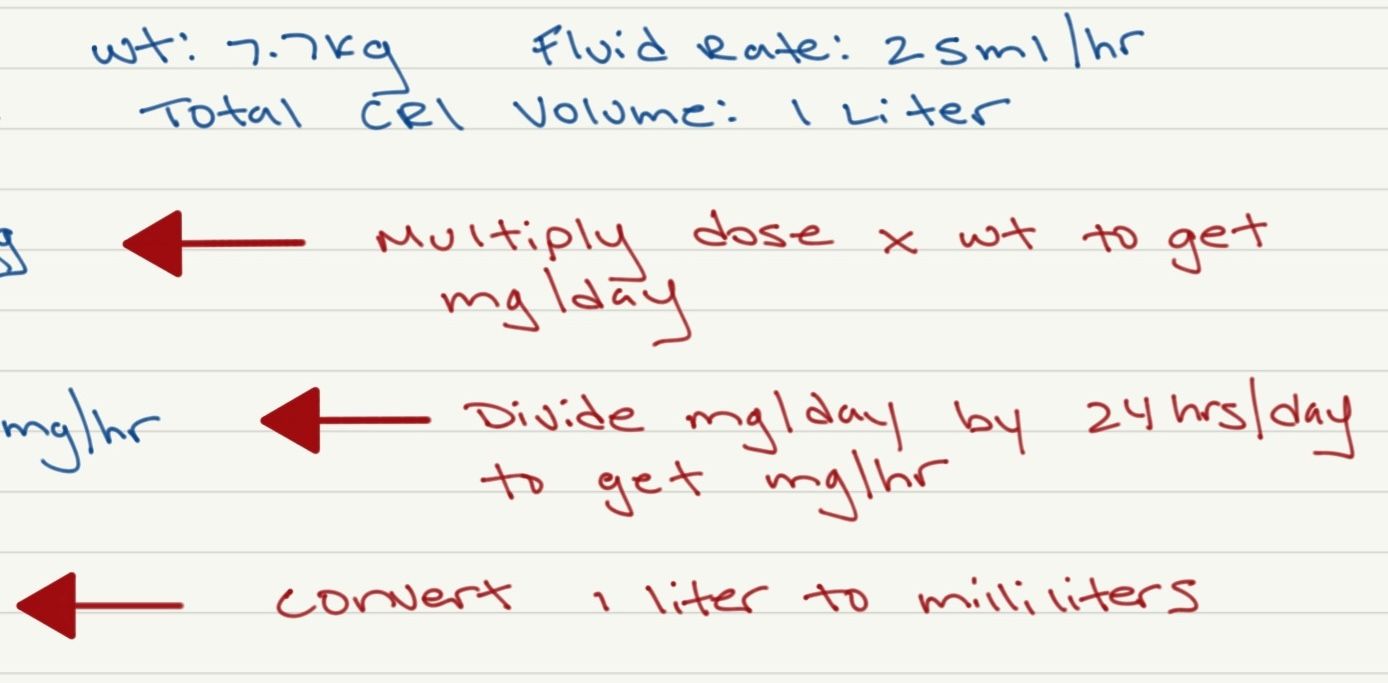 wt: 7.7kg Fluid Rate: 25ml/hr
Total CRI Volume: 1 Liter
g Multiply dose x wt to get
mg/day
mg/hr Divide mg/day by 24hrs/day
to get mg/hr
convert 1 liter to milliliters